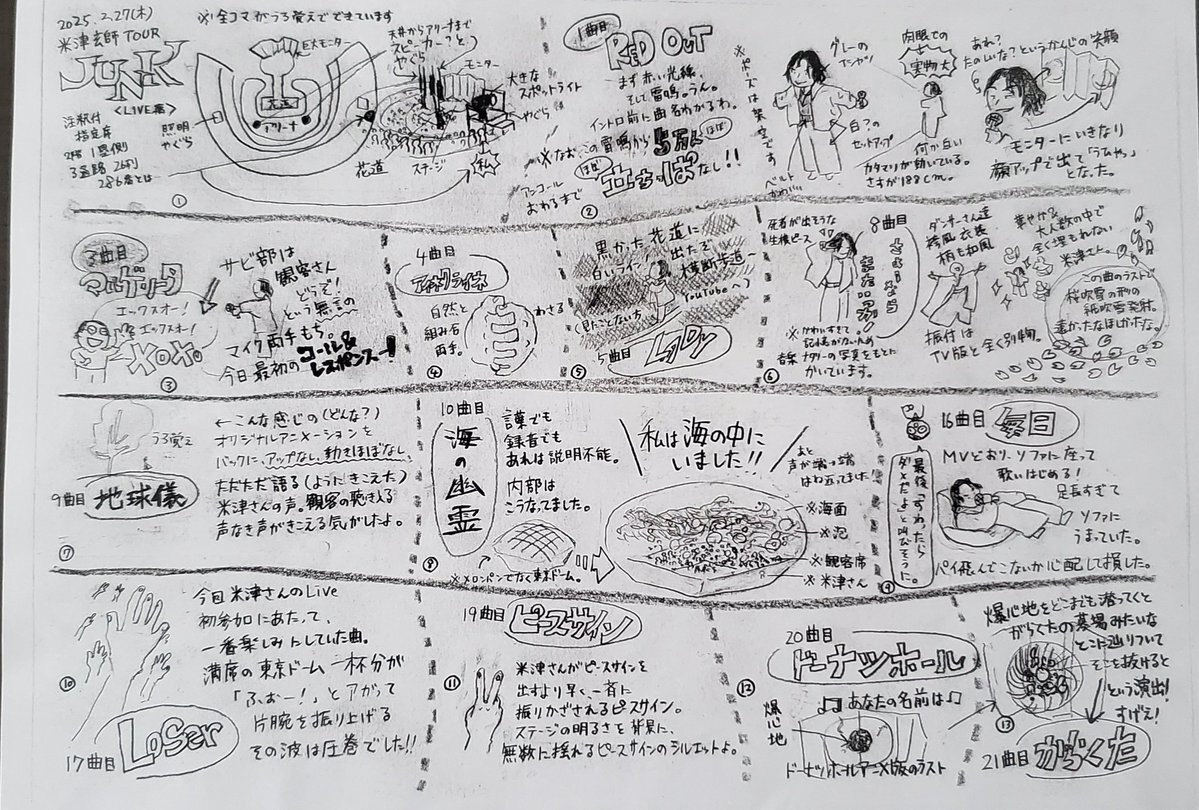 2025.2.27(木)
米津玄師 TOUR
JUNK
<LIVE席>
注釈付
指定席
2階 1塁側
※全コマがうろ覚えでできています
巨大モニター
花道
アリーナ
照明
やぐら
天井からアリーナまで
スピーカー?と
やぐら
モニター
大きな
スポットライト
やぐら
花道
ステージ
私
①
1曲目
RED OUT
まず赤い光線、
そして雷鳴。うん。
イントロ前に曲名わかるわ。
※なお、この雷鳴から5万人ほぼ
アンコール
おわるまで
ほぼ
立ちっぱなし!!
②
※ポーズは架空です
グレーの
Tシャツ
白?の
セットアップ
ベルト
肉眼での
実物大
何か白い
カタマリが動いている。
さすが188cm。
あれ?
たのしいな?というかんじの笑顔
モニターにいきなり
顔アップで出て「うひゃっ」
となった。
3曲目
マルゲリータ
エックスオー!
エックスオー!
XOXO。
サビ部は
観客さん
どうぞ!
という無言の
マイク両手もち。
今日最初のコール&
レスポンスー!
③
4曲目
アイネクライネ
自然と
組み合わさる
両手。
④
黒かった花道に
白いライン
出たぞ
横断歩道〜
(見たことない方
YouTubeへ)
5曲目
LADY
⑤
死者が出そうな
生横ピース
8曲目
さよーなら
またいつか!
※かわいすぎて
記憶がないため
音楽ナタリーの写真をもとに
かいています。
⑥
ダンサーさん達
袴風衣装
柄も和風
振付は
TV版と全く別物。
華やか&
大人数の中で
全く埋もれない
米津さん。
この曲のラストで
桜吹雪の形の
紙吹雪発射。
遠かったなほしかったな。
うろ覚え
9曲目
地球儀
←こんな感じの(どんな?)
オリジナルアニメーションを
バックに、アップなし、動きほぼなし、
ただただ語る(ようにきこえた)
米津さんの声。観客の聴き入る
声なき声がきこえる気がしたよ。
⑦
10曲目
海の幽霊
言葉でも
録音でも
あれは説明不能。
内部は
こうなってました。
※メロンパンでなく東京ドーム。
⑧
私は海の中に
いました!!
※海面
※泡
※観客席
※米津さん
16曲目
毎日
MVどおり、ソファに座って
歌いはじめる!
足長すぎて
ソファに
うまっていた。
パイ飛んでこないか心配して損した。
⑨
今回米津さんのLive
初参加にあたって、
一番楽しみにしていた曲。
満席の東京ドーム一杯分が
「ふぉー!」とアガって
片腕を振り上げる
その波は圧巻でした!!
⑩
17曲目
Loser
19曲目
ピースサイン
米津さんがピースサインを
出すより早く一斉に
振りかざされるピースサイン。
ステージの明るさを背景に、
無数に揺れるピースサインのシルエットよ。
⑪
20曲目
ドーナツホール
♪♫あなたの名前は♫
爆心地
ドーナツホールアニメ版のラスト
⑫
爆心地をどこまでも潜ってくと
がらくたの墓場みたいな
とこに辿りついて
そこを抜けると
という演出!
すげえ!
⑬
21曲目
がらくた